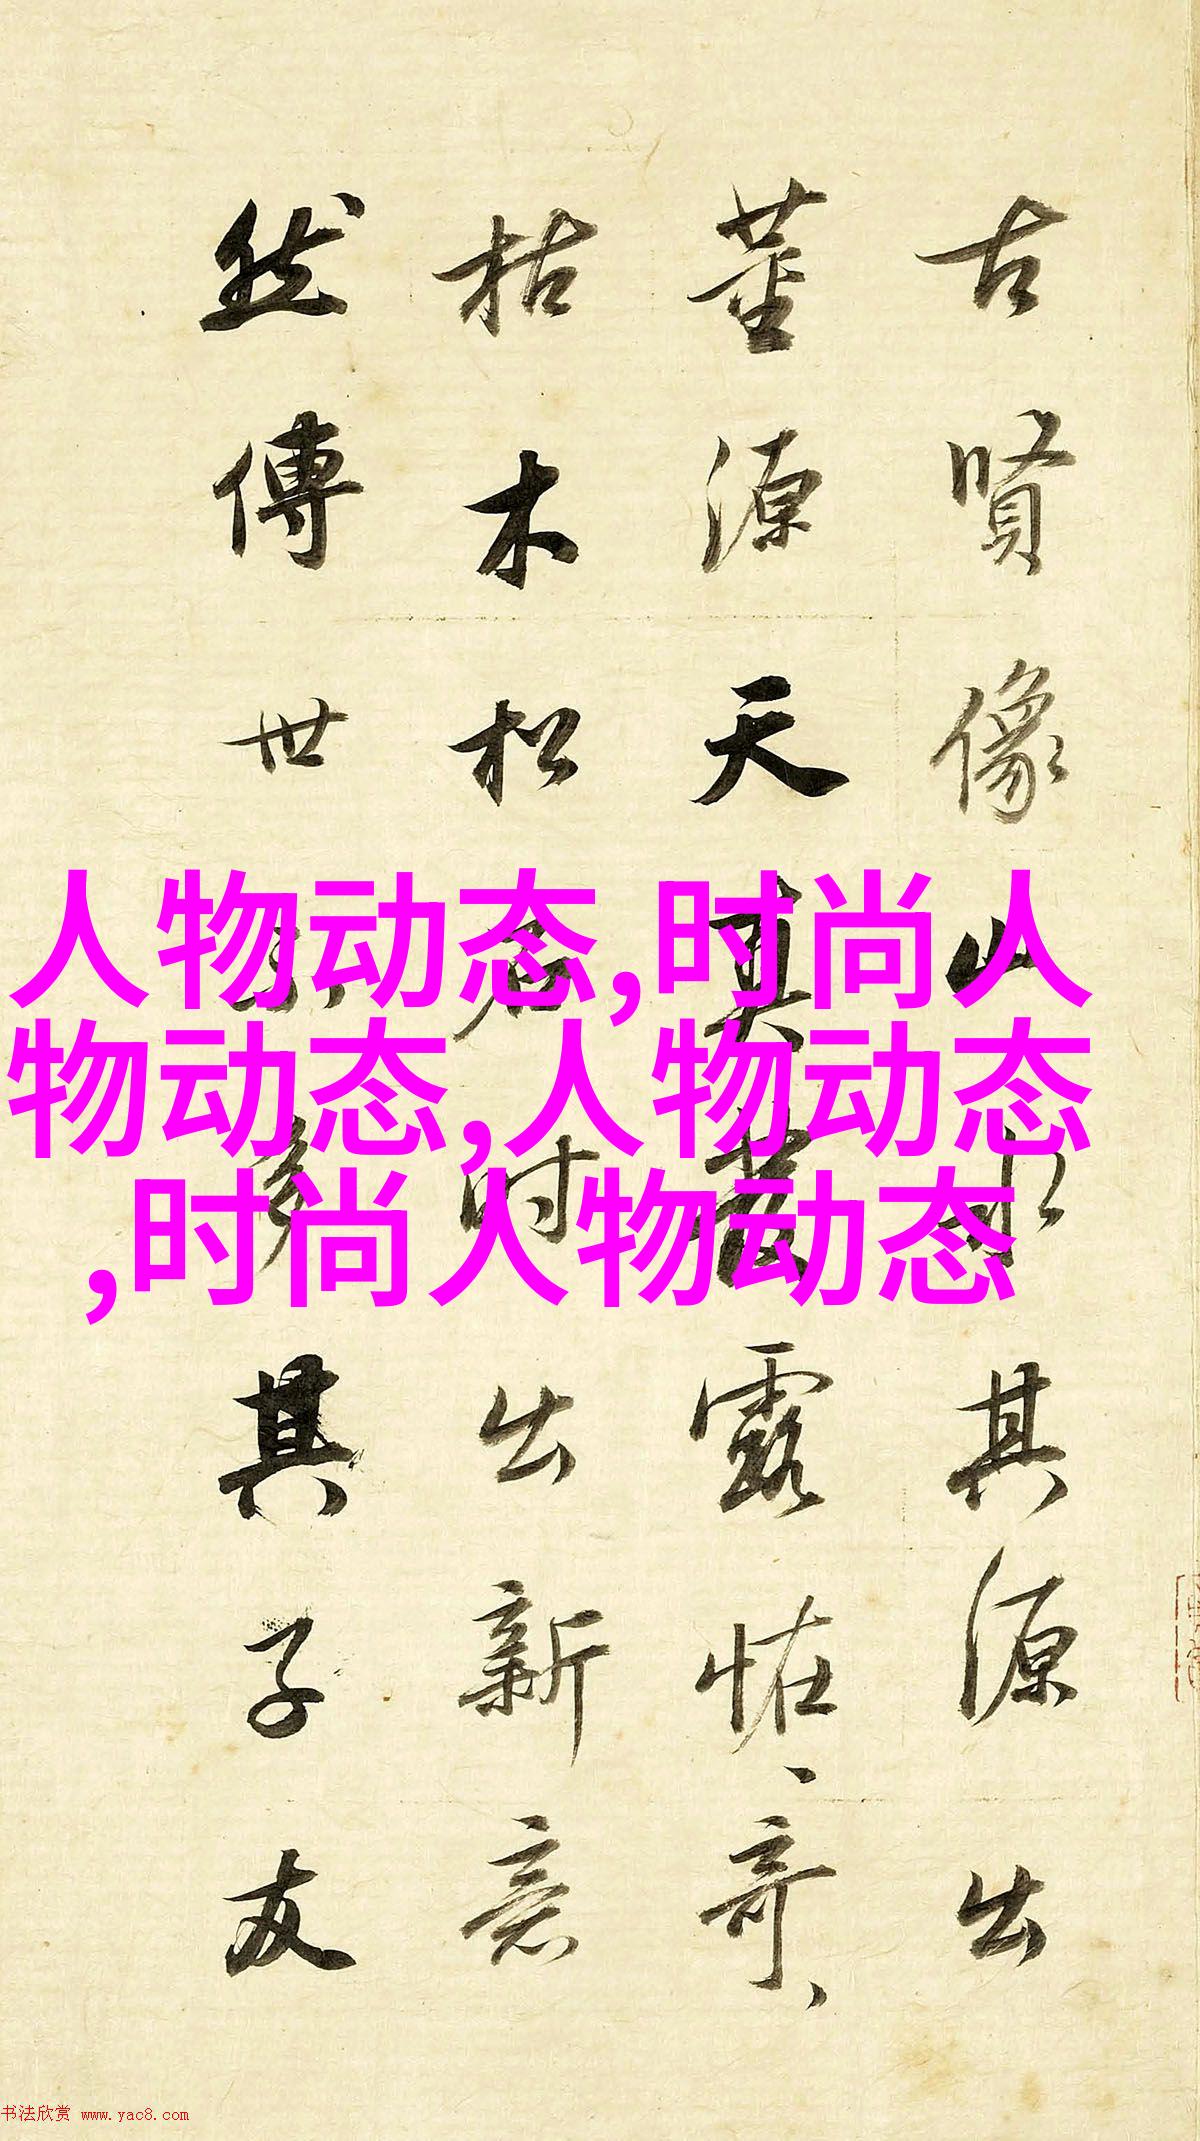 古賢像山水其源出
董源天真發露恠、奇、
枯木松石時出新意
然傳世多其子友
人物动态,时尚人
物动态,人物动态
,时尚人物动态
书法欣赏 www.yac8.com